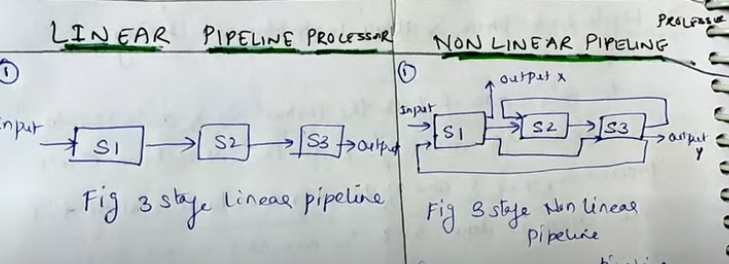 LINEAR PIPELINE PROCESSOR
①
input
S1
S2
S3
output
Fig 3 stage linear pipeline
PROCESSOR
NON LINEAR PIPELING
①
output x
Input
S1
S2
S3
output
y
Fig 3 stage Non linear
pipeline